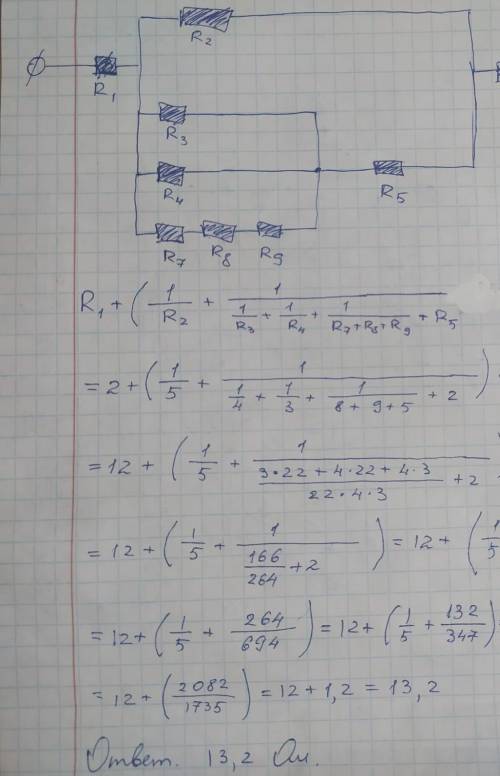 R2
R1
R3
R4
R5
R7 R8 R9
R1 + ( 1/R2 + 1/(1/R3 + 1/R4 + 1/(R7+R8+R9) + R5
= 2 + ( 1/5 + 1/(1/4 + 1/3 + 1/(8 + 9 + 5) + 2) )
= 12 + ( 1/5 + 1/((3·22 + 4·22 + 4·3)/(22·4·3) + 2
= 12 + ( 1/5 + 1/(166/264 + 2) ) = 12 + ( 1/5
= 12 + ( 1/5 + 264/694 ) = 12 + ( 1/5 + 132/347 )
= 12 + ( 2082/1735 ) = 12 + 1,2 = 13,2
Ответ. 13,2 Ом.